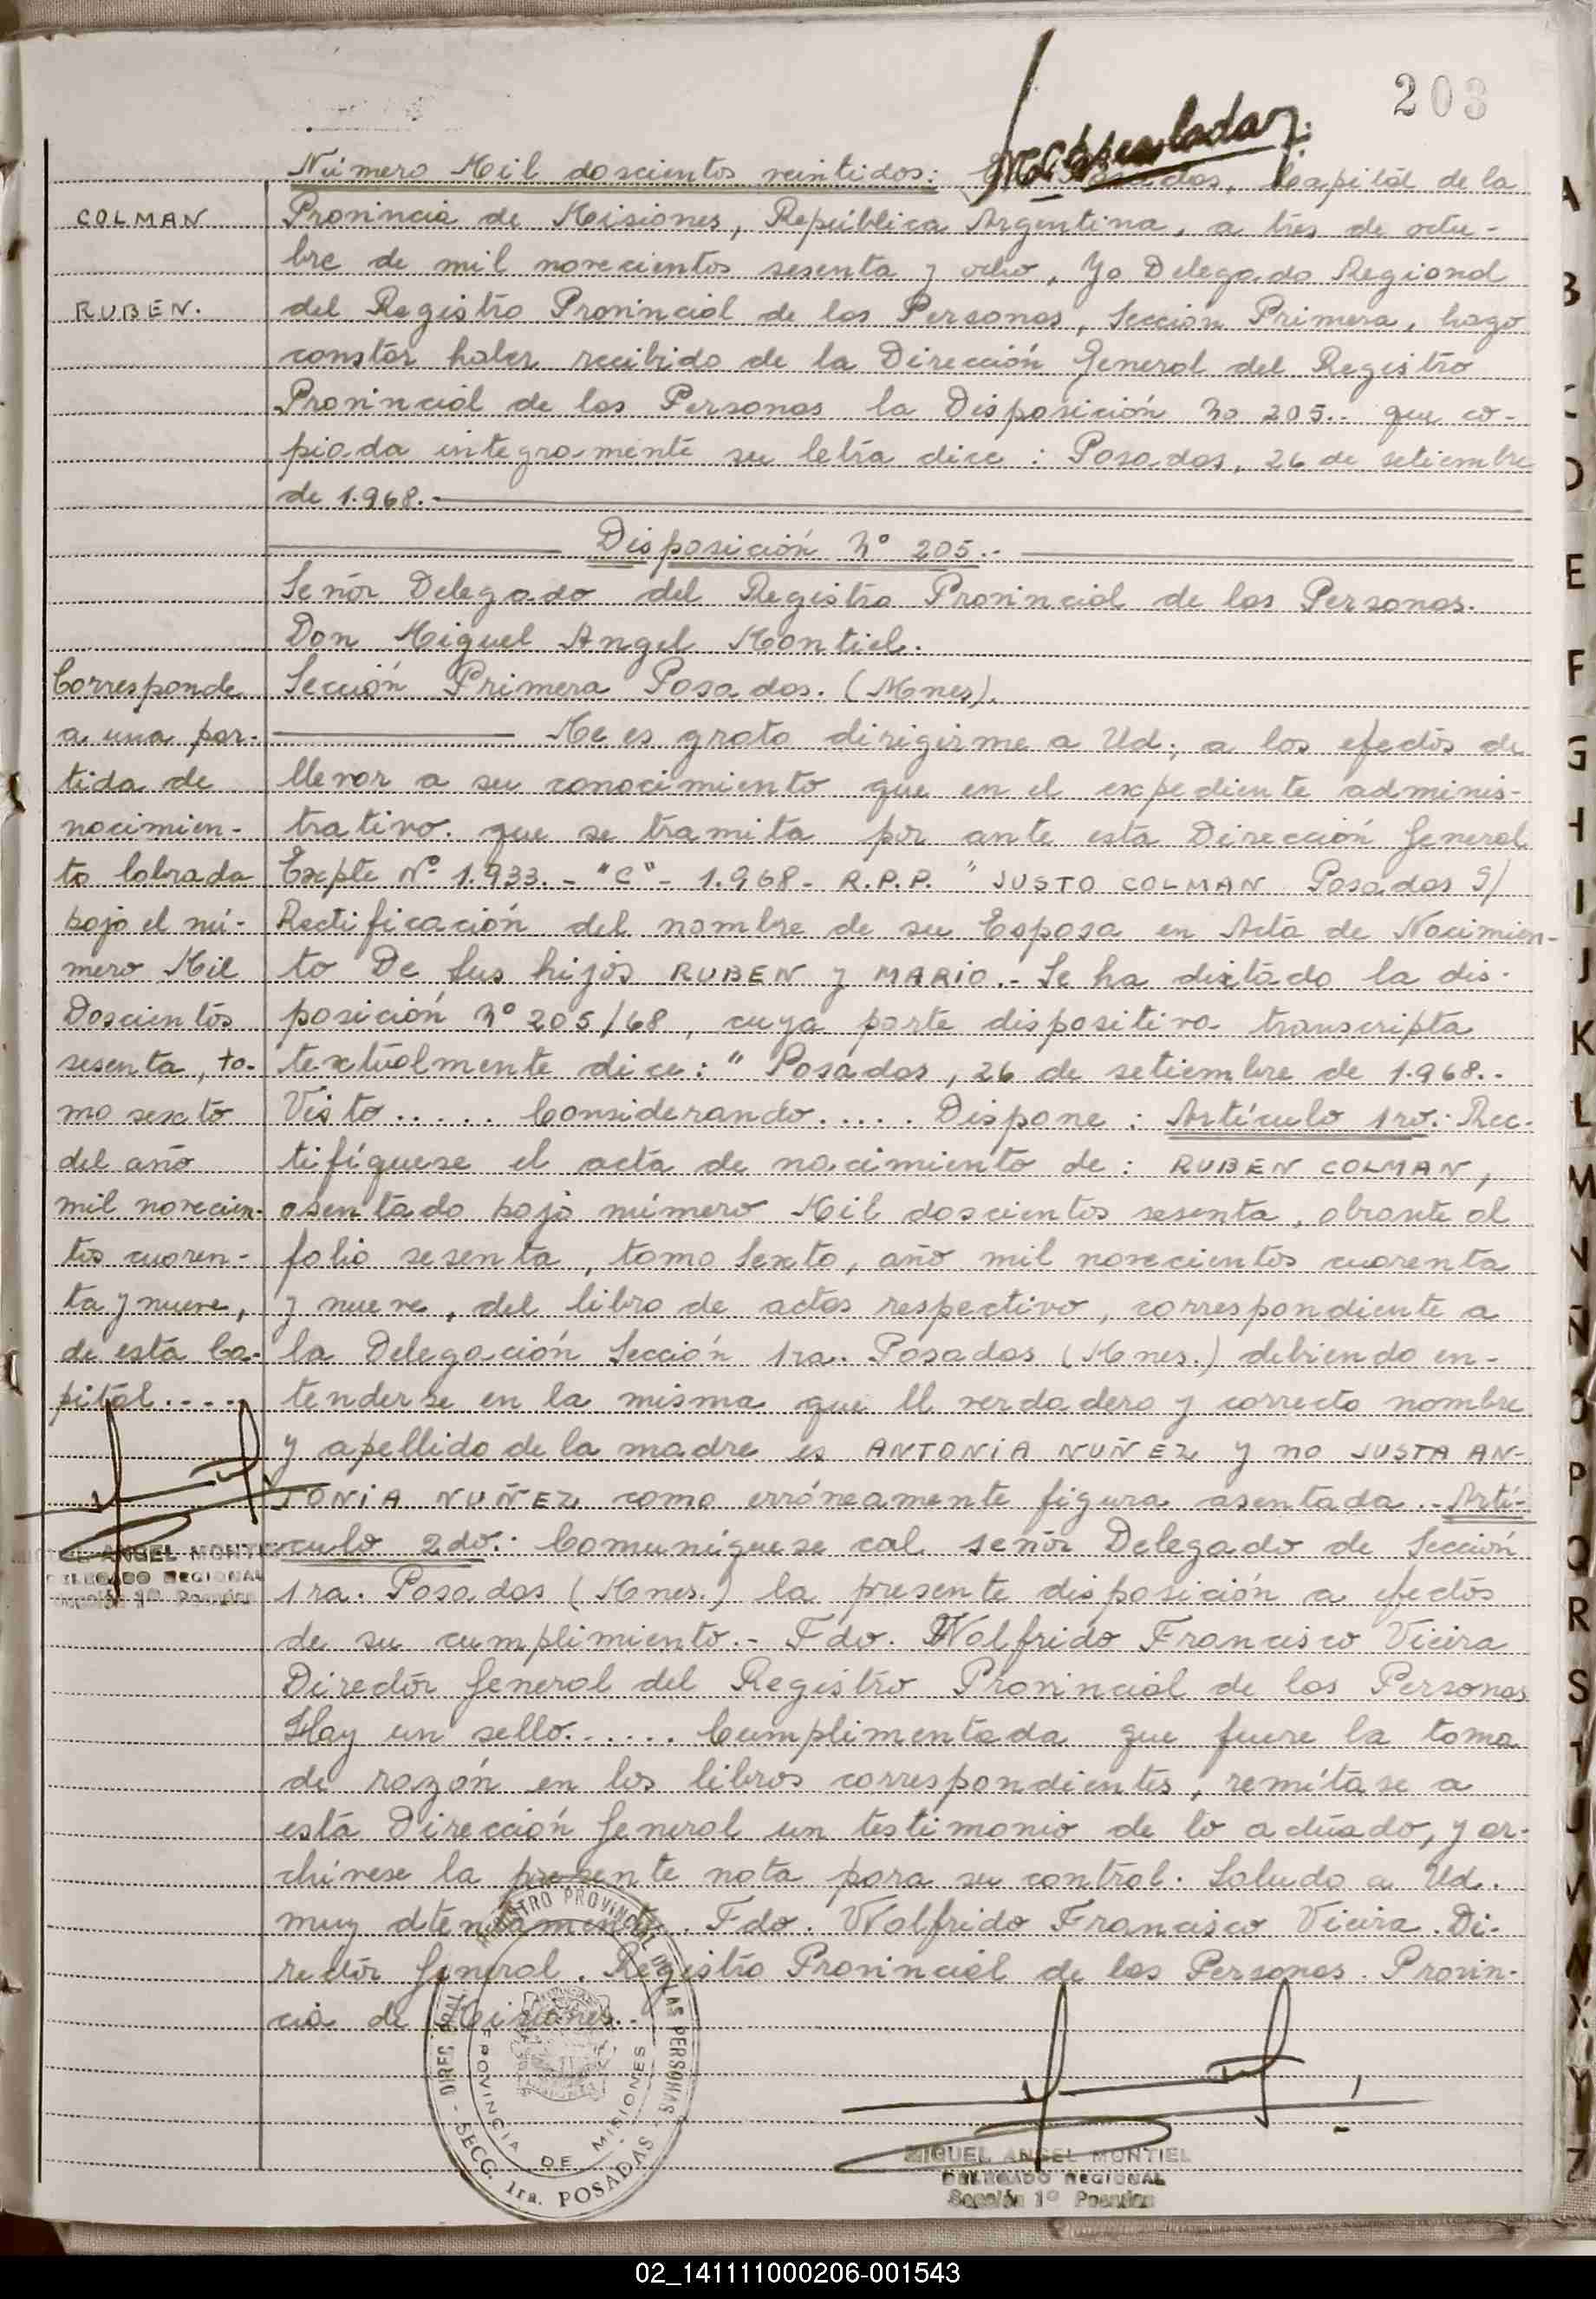 203
Número Mil doscientos veintidos: Posadas, Capital de la
Provincia de Misiones, República Argentina, a tres de octu-
bre de mil novecientos sesenta y ocho, Yo Delegado Regional
del Registro Provincial de las Personas, Sección Primera, hago
constar haber recibido de la Dirección General del Registro
Provincial de las Personas la Disposición No 205.- que co-
piada integramente su letra dice: Posadas, 26 de setiembre
de 1.968.-
Disposición Nº 205.-
Señor Delegado del Registro Provincial de las Personas.
Don Miguel Angel Montiel.
Sección Primera Posadas. (Mnes).
Me es grato dirigirme a Ud., a los efectos de
llevar a su conocimiento que en el expediente adminis-
trativo. que se tramita por ante esta Dirección General
Expte Nº 1.933. - "C" - 1.968 - R.P.P. " JUSTO COLMAN Posadas S/
Rectificación del nombre de su Esposa en Acta de Nacimien-
to De Sus hijos RUBEN y MARIO.- Se ha dictado la dis-
posición Nº 205/68, cuya parte dispositiva transcripta
textualmente dice: " Posadas, 26 de setiembre de 1.968.-
Visto..... Considerando..... Dispone: Artículo 1ro.: Rec-
tifíquese el acta de nacimiento de: RUBEN COLMAN,
asentado bajo número Mil doscientos sesenta, obrante al
folio sesenta, tomo Sexto, año mil novecientos cuarenta
y nueve, del libro de actas respectivo, correspondiente a
la Delegación Sección 1ra. Posadas (Mnes.) debiendo en-
tenderse en la misma que el verdadero y correcto nombre
y apellido de la madre es ANTONIA NUÑEZ y no JUSTA AN-
TONIA NUÑEZ como erróneamente figura asentada.- Artí-
culo 2do.: Comuníquese al señor Delegado de Sección
1ra. Posadas (Mnes.) la presente disposición a efectos
de su cumplimiento.- Fdo. Wolfrido Francisco Vieira
Director General del Registro Provincial de las Personas
Hay un sello...... Cumplimentada que fuere la toma
de razón en los libros correspondientes, remítase a
esta Dirección General un testimonio de lo actuado, y ar-
chívese la presente nota para su control. Saludo a Ud.
muy atentamente. Fdo. Wolfrido Francisco Vieira. Di-
rector General. Registro Provincial de las Personas. Provin-
cia de Misiones.-
COLMAN
RUBEN.
Corresponde
a una par-
tida de
nacimien-
to labrada
bajo el nú-
mero Mil
Doscientos
sesenta, to-
mo sexto
del año
mil novecien-
tos cuaren-
ta y nueve,
de esta Ca-
pital....
MIGUEL ANGEL MONTIEL
DELEGADO REGIONAL
Sección 1ª Posadas
DIREC. GRAL. REGISTRO PROVINCIAL DE LAS PERSONAS
PROVINCIA DE MISIONES
SECC. 1ra. POSADAS
MIGUEL ANGEL MONTIEL
DELEGADO REGIONAL
Sección 1ª Posadas
A
B
C
D
E
F
G
H
I
J
K
L
M
N
Ñ
O
P
Q
R
S
T
U
V
W
X
Y
Z
02_141111000206-001543